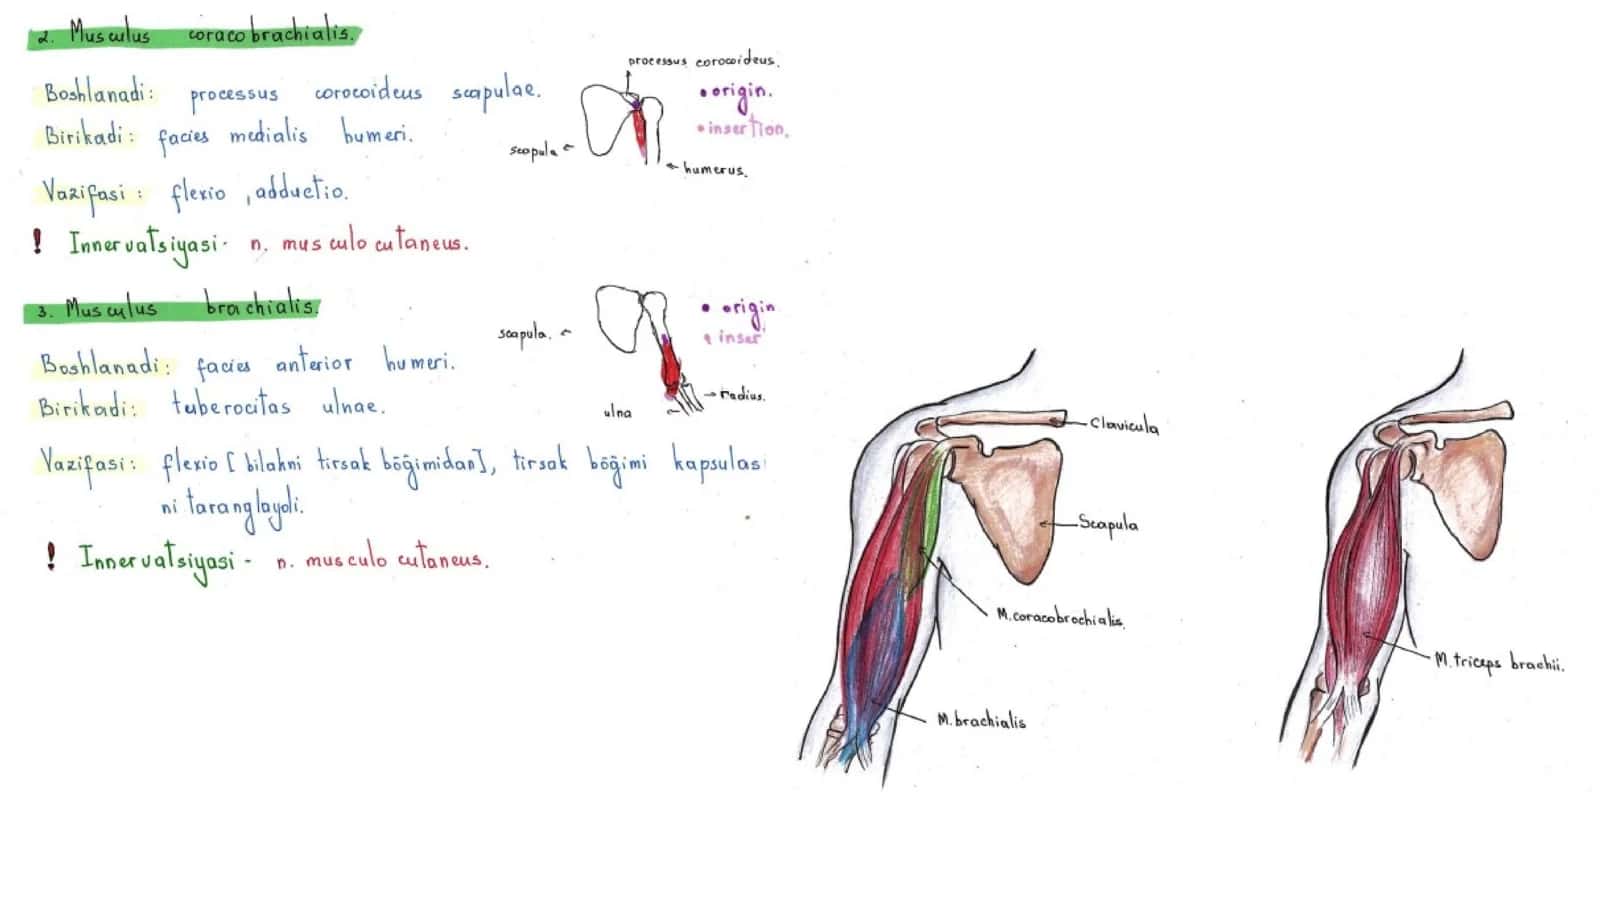 2. Musculus coracobrachialis.
Boshlanadi: processus corocoideus scapulae.
Birikadi: facies medialis humeri.
Vazifasi: flexio, adductio.
! Innervatsiyasi- n. musculo cutaneus.
processus corocoideus.
• origin.
• insertion.
scapula
humerus.
3. Musculus brachialis.
Boshlanadi: facies anterior humeri.
Birikadi: tuberocitas ulnae.
Vazifasi: flexio [bilakni tirsak bōğimidan], tirsak bōğimi kapsulasi
ni taranglaydi.
! Innervatsiyasi- n. musculo cutaneus.
scapula.
• origin
• inser
radius.
ulna
Clavicula
Scapula
M.coracobrachialis.
M.brachialis
M.triceps brachii.